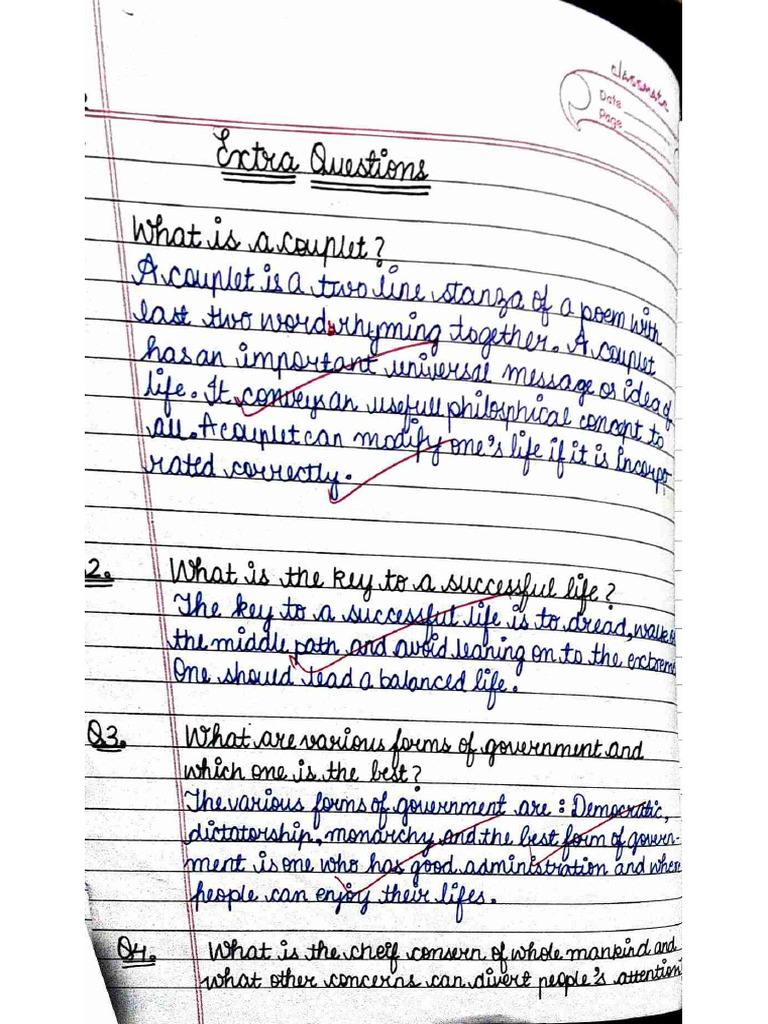 classmate
Date
Page
Extra Questions
What is a couplet?
A couplet is a two line stanza of a poem with
last two word rhyming together. A couplet
has an important universal message or idea of
life. It conveys an usefull philosphical concept to
all. A couplet can modify one's life if it is incorpo
rated correctly.
2. What is the key to a successful life?
The key to a successful life is to dread, walk
the middle path and avoid leaning on to the extreme
One should lead a balanced life.
Q3. What are various forms of government and
which one is the best?
The various forms of government are : Democratic,
dictatorship, monarchy and the best form of govern-
ment is one who has good administration and where
people can enjoy their lifes.
Q4. What is the cheif consern of whole mankind and
what other concerns can divert people's attention